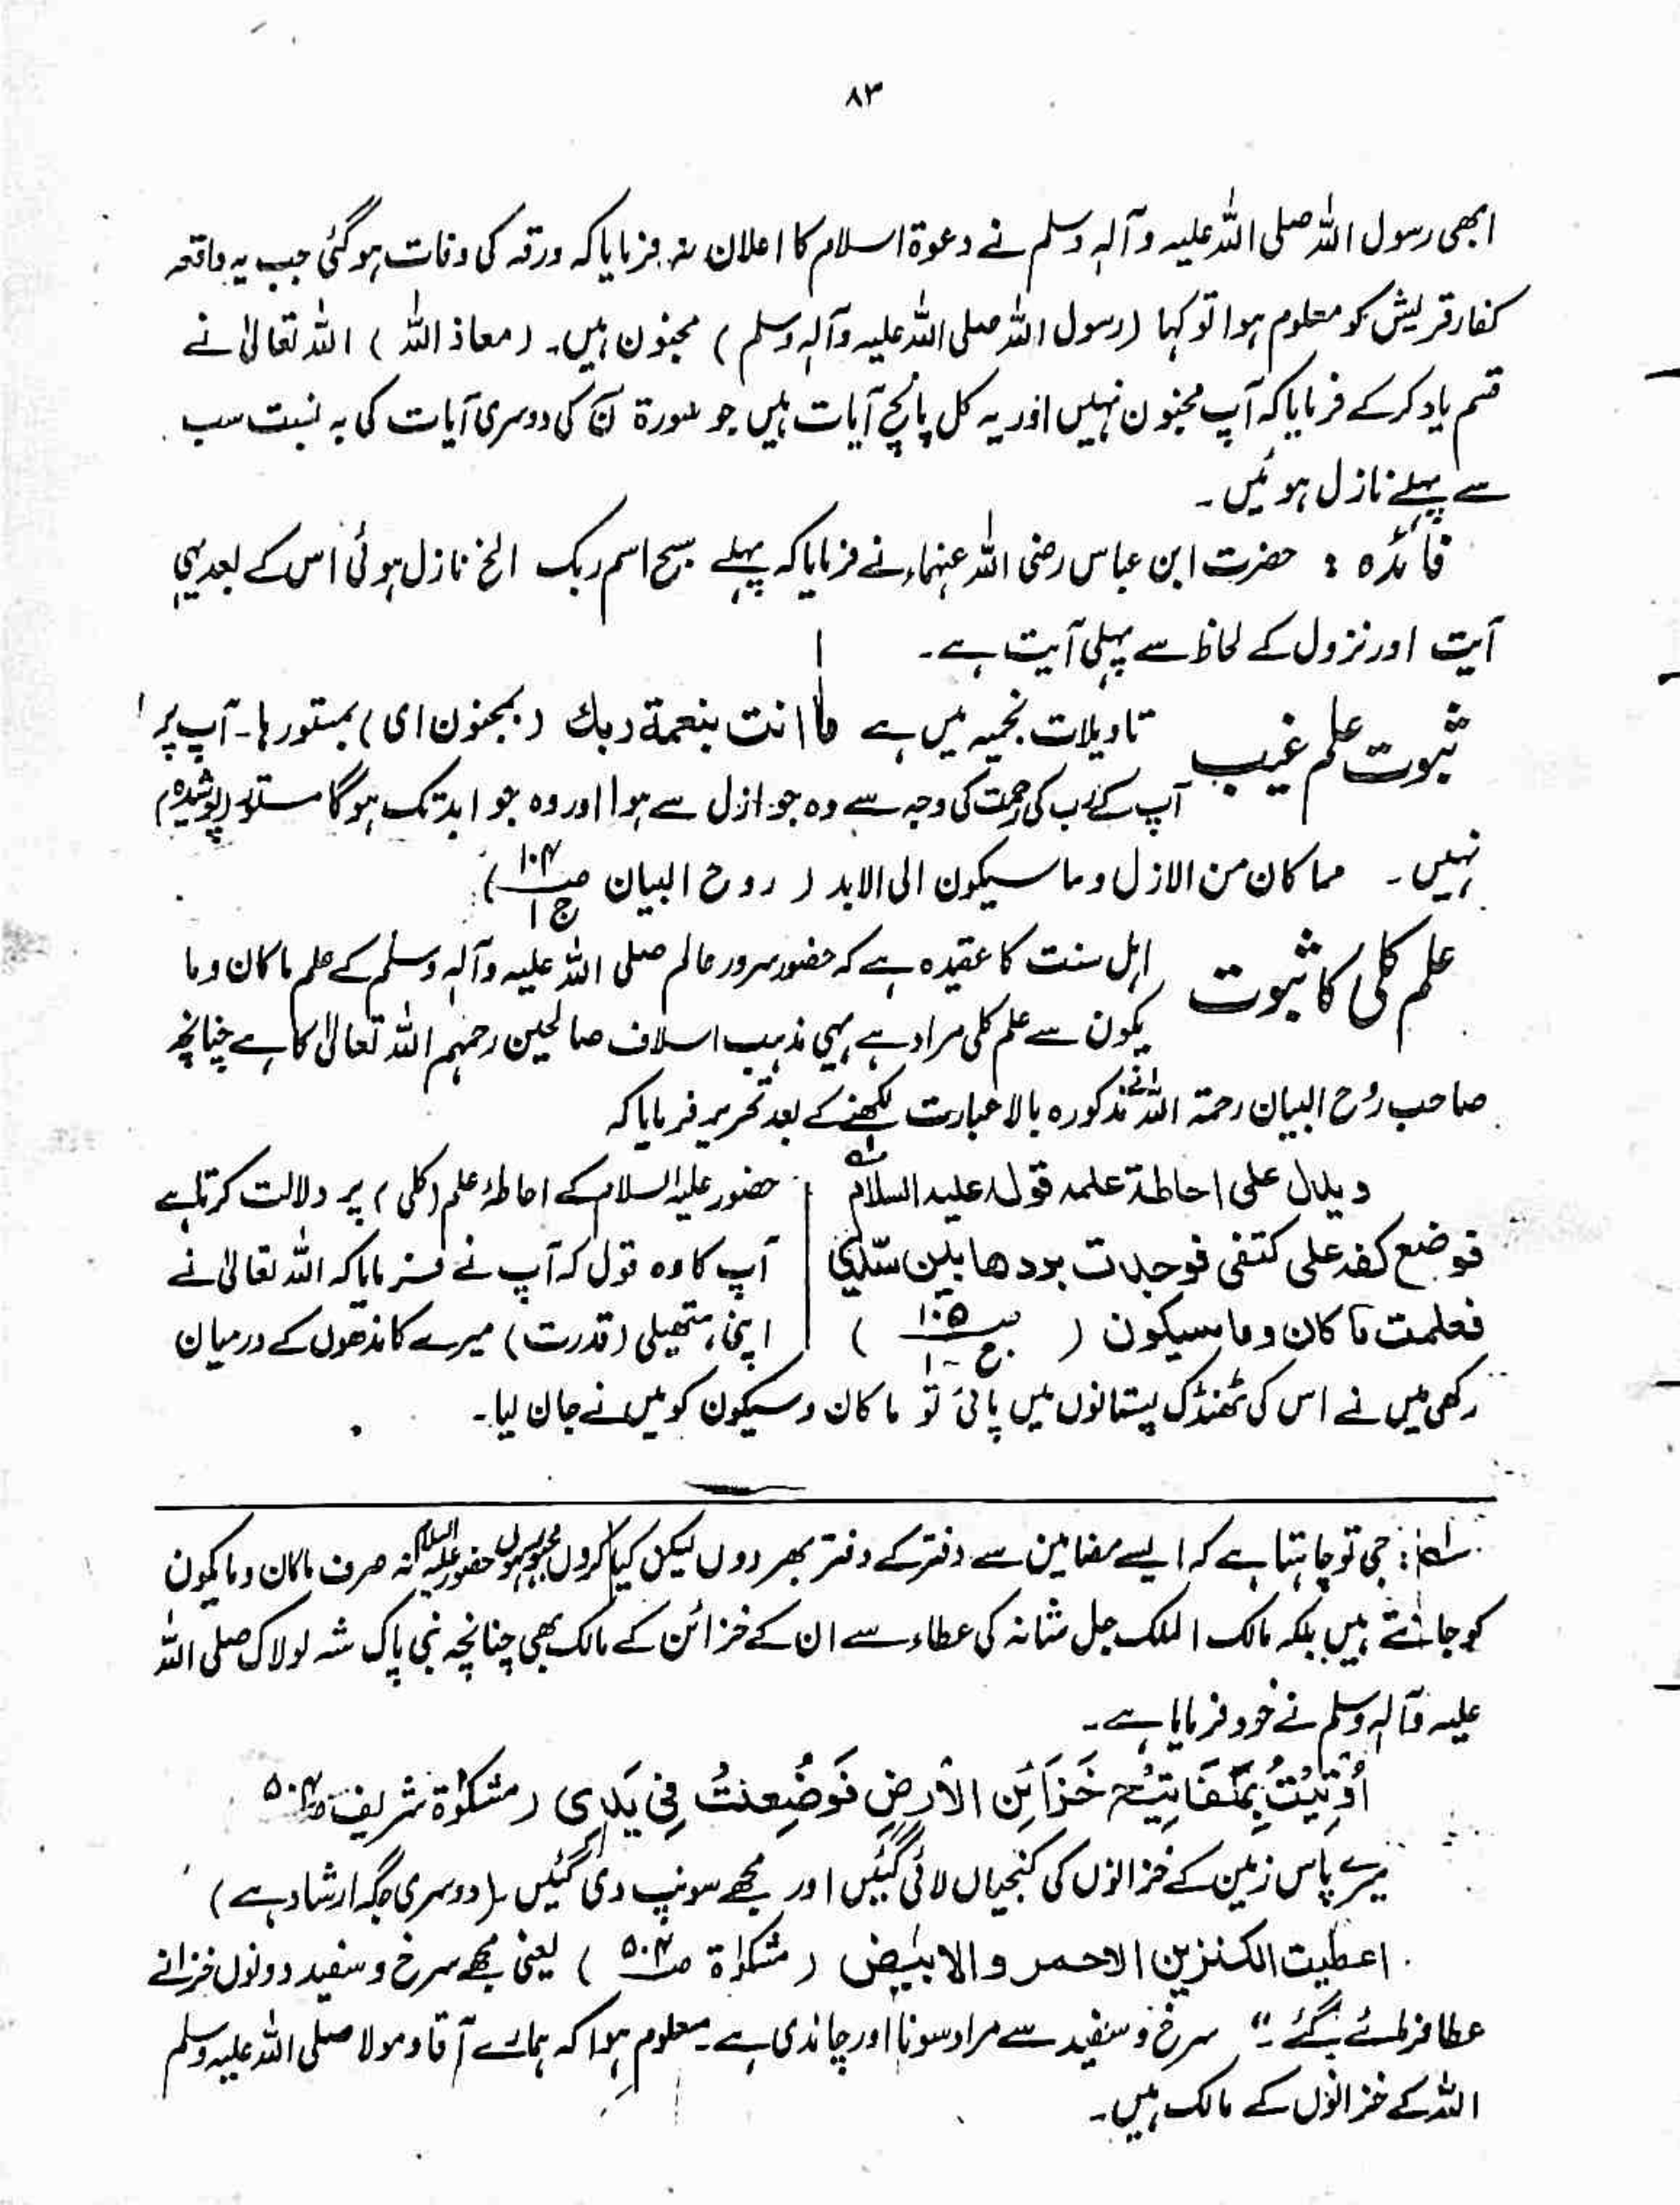 ۸۳
ابھی رسول اللہ صلی اللہ علیہ وآلہٖ وسلم نے دعوۃ اسلام کا اعلان نہ فرمایا کہ ورقہ کی وفات ہوگئی جب یہ واقعہ
کفار قریش کو معلوم ہوا تو کہا (رسول اللہ صلی اللہ علیہ وآلہٖ وسلم) مجنون ہیں۔ (معاذ اللہ) اللہ تعالیٰ نے
قسم یاد کرکے فرمایا کہ آپ مجنون نہیں اور یہ کل پانچ آیات ہیں جو سورۃ نٓ کی دوسری آیات کی بہ نسبت سب
سے پہلے نازل ہوئیں۔
فائدہ : حضرت ابن عباس رضی اللہ عنہماء نے فرمایا کہ پہلے سبح اسم ربک الخ نازل ہوئی اس کے بعد یہی
آیت اور نزول کے لحاظ سے پہلی آیت ہے۔
ثبوت علم غیب
تاویلات نجمیہ میں ہے ما انت بنعمۃ ربك (بمجنون ای) بمستور ہا۔ آپ پر
آپ کے رب کی رحمت کی وجہ سے وہ جو ازل سے ہوا اور وہ جو ابد تک ہوگا مستور (پوشیدہ)
نہیں۔ مما کان من الازل وما سیکون الی الابد (روح البیان صـ ۱۰۴ ج ۱)
علم کلی کا ثبوت
اہل سنت کا عقیدہ ہے کہ حضور سرور عالم صلی اللہ علیہ وآلہٖ وسلم کے علم ما کان وما
یکون سے علم کلی مراد ہے یہی مذہب اسلاف صالحین رحمہم اللہ تعالیٰ کا ہے چنانچہ
صاحب رُوح البیان رحمۃ اللہ نے مذکورہ بالا عبارت لکھنے کے بعد تحریر فرمایا کہ
ویدل علی احاطۃ علمہ قولہ علیہ السلام
فوضع کفہ علی کتفی فوجدت بردھا بین ثدیی
فعلمت ما کان وما سیکون (صـ ۱۰۵ ج ۱۰)
حضور علیہ السلام کے احاطۂ علم (کلی) پر دلالت کرتا ہے
آپ کا وہ قول کہ آپ نے فرمایا کہ اللہ تعالیٰ نے
اپنی ہتھیلی (قدرت) میرے کاندھوں کے درمیان
رکھی میں نے اس کی ٹھنڈک پستانوں میں پائی تو ما کان وسیکون کو میں نے جان لیا۔
جی تو چاہتا ہے کہ ایسے مضامین سے دفتر کے دفتر بھر دوں لیکن کیا کروں مجبور ہوں حضور علیہ السلام نہ صرف ماکان وما یکون
کو جانتے ہیں بلکہ مالک الملک جل شانہ کی عطاء سے ان کے خزائن کے مالک بھی چنانچہ نبی پاک شہ لولاک صلی اللہ
علیہ وآلہٖ وسلم نے خود فرمایا ہے۔
أُوتِيتُ بِمَفَاتِيحِ خَزَائِنِ الْأَرْضِ فَوُضِعَتْ فِي يَدِي (مشکوٰۃ شریف صـ ۵۰۴
میرے پاس زمین کے خزانوں کی کنجیاں لائی گئیں اور مجھے سونپ دی گئیں۔ (دوسری جگہ ارشاد ہے)
اعطیت الکنزین الاحمر والابیض (مشکوٰۃ صـ ۵۰۴) یعنی مجھے سرخ و سفید دونوں خزانے
عطا فرمائے گئے۔" سرخ و سفید سے مراد سونا اور چاندی ہے۔ معلوم ہوا کہ ہمارے آقا ومولا صلی اللہ علیہ وسلم
اللہ کے خزانوں کے مالک ہیں۔